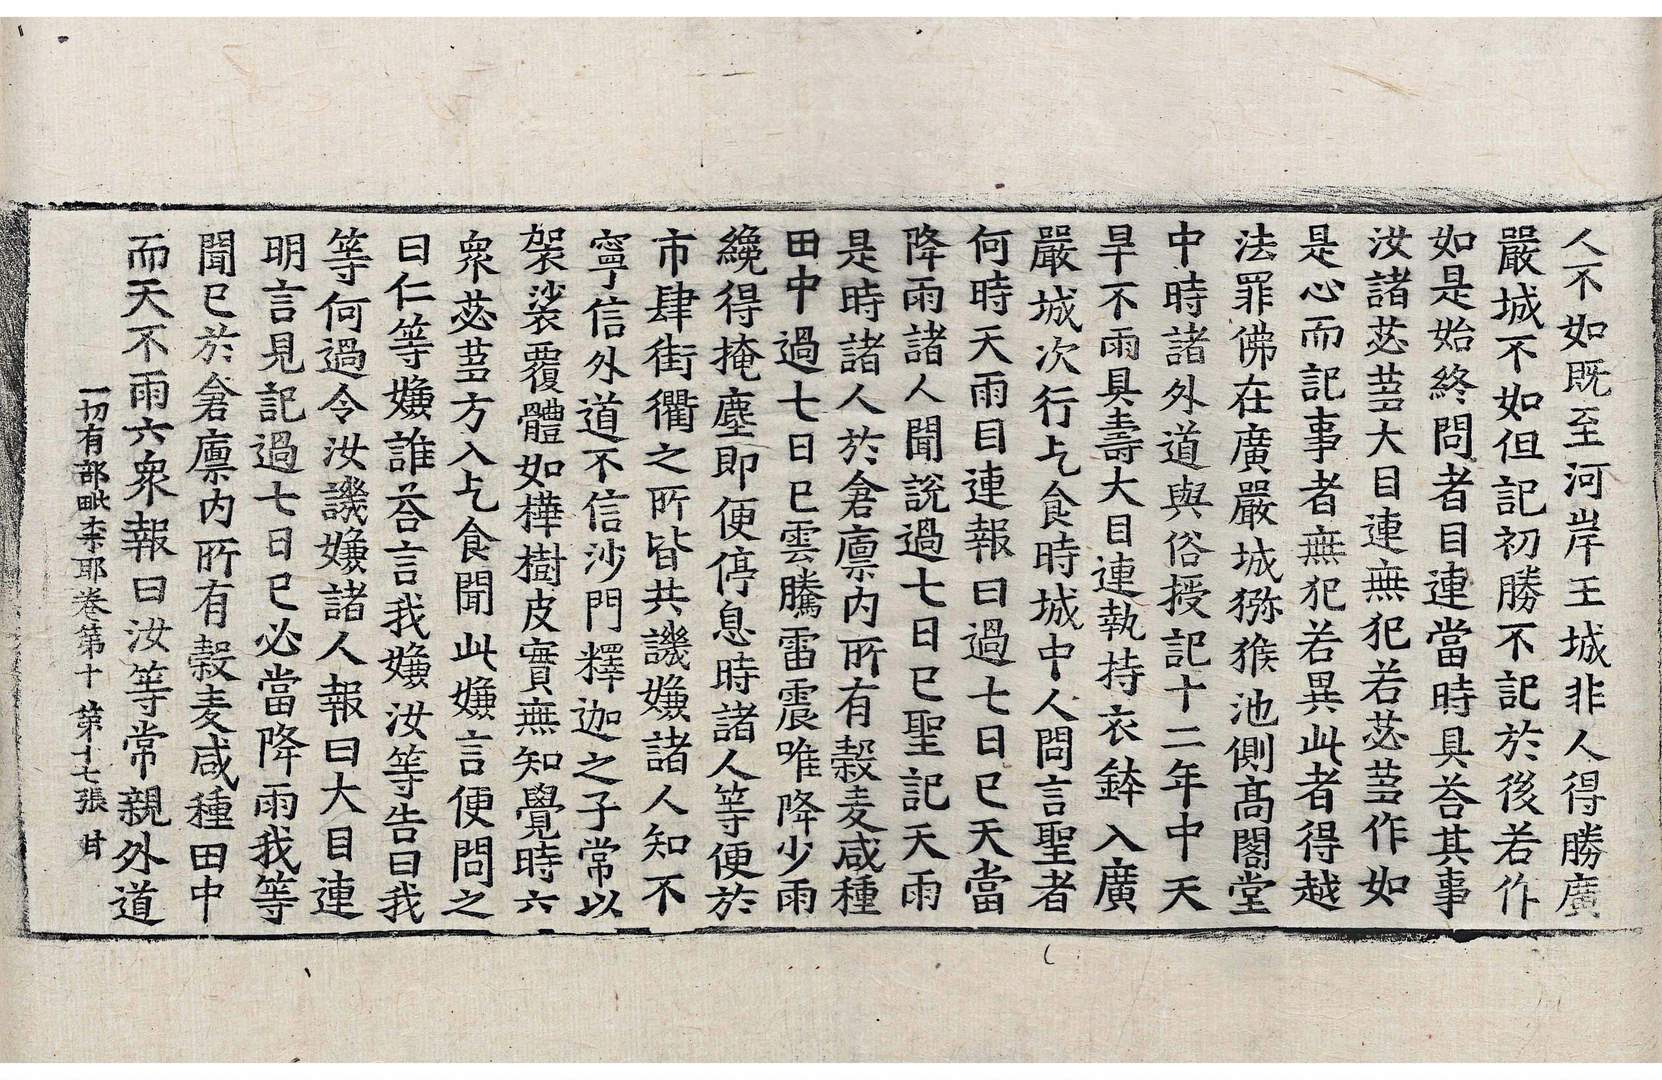 人不如既至河岸王城非人得勝廣
嚴城不如但記初勝不記於後若作
如是始終問者目連當時具荅其事
汝諸苾芻大目連無犯若苾芻作如
是心而記事者無犯若異此者得越
法罪佛在廣嚴城猕猴池側髙閣堂
中時諸外道與俗授記十二年中天
旱不雨具壽大目連執持衣鉢入廣
嚴城次行乞食時城中人問言聖者
何時天雨目連報曰過七日已天當
降雨諸人聞說過七日已聖記天雨
是時諸人於倉廩內所有穀麦咸種
田中過七日已雲騰雷震唯降少雨
纔得掩塵即便停息時諸人等便於
市肆街衢之所皆共譏嫌諸人知不
寧信外道不信沙門釋迦之子常以
袈裟覆體如樺樹皮實無知覺時六
衆苾芻方入乞食聞此嫌言便問之
曰仁等嫌誰荅言我嫌汝等告曰我
等何過令汝譏嫌諸人報曰大目連
明言見記過七日已必當降雨我等
聞已於倉廩內所有穀麦咸種田中
而天不雨六衆報曰汝等常親外道
一切有部毗柰耶卷第十 第十七張 甘